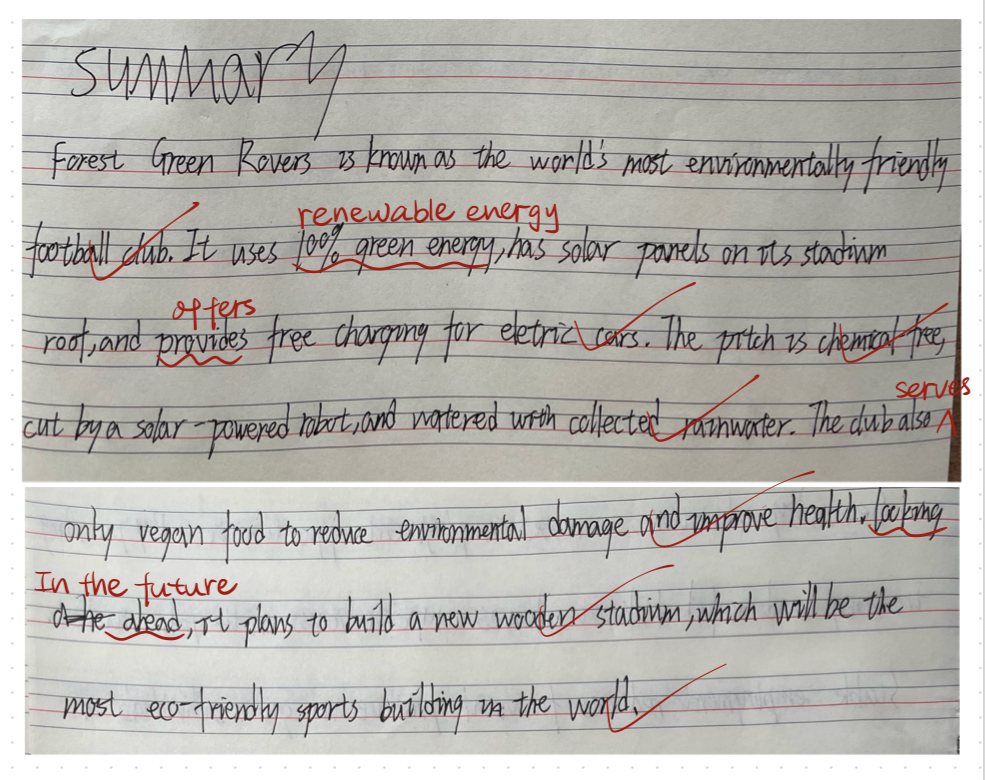 summary
Forest Green Rovers is known as the world's most environmentally friendly
renewable energy
football club. It uses 100% green energy, has solar panels on its stadium
offers
roof, and provides free charging for eletric cars. The pitch is chemical free,
serves
cut by a solar-powered robot, and watered with collected rainwater. The club also
only vegan food to reduce environmental damage and improve health. Looking
In the future
ahead, it plans to build a new wooden stadium, which will be the
most eco-friendly sports building in the world.